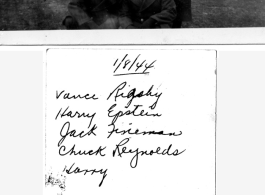 1/8/44
Vance Rigsby
Harry Epstein
Jack Fineman
Chuck Reynolds
Harry